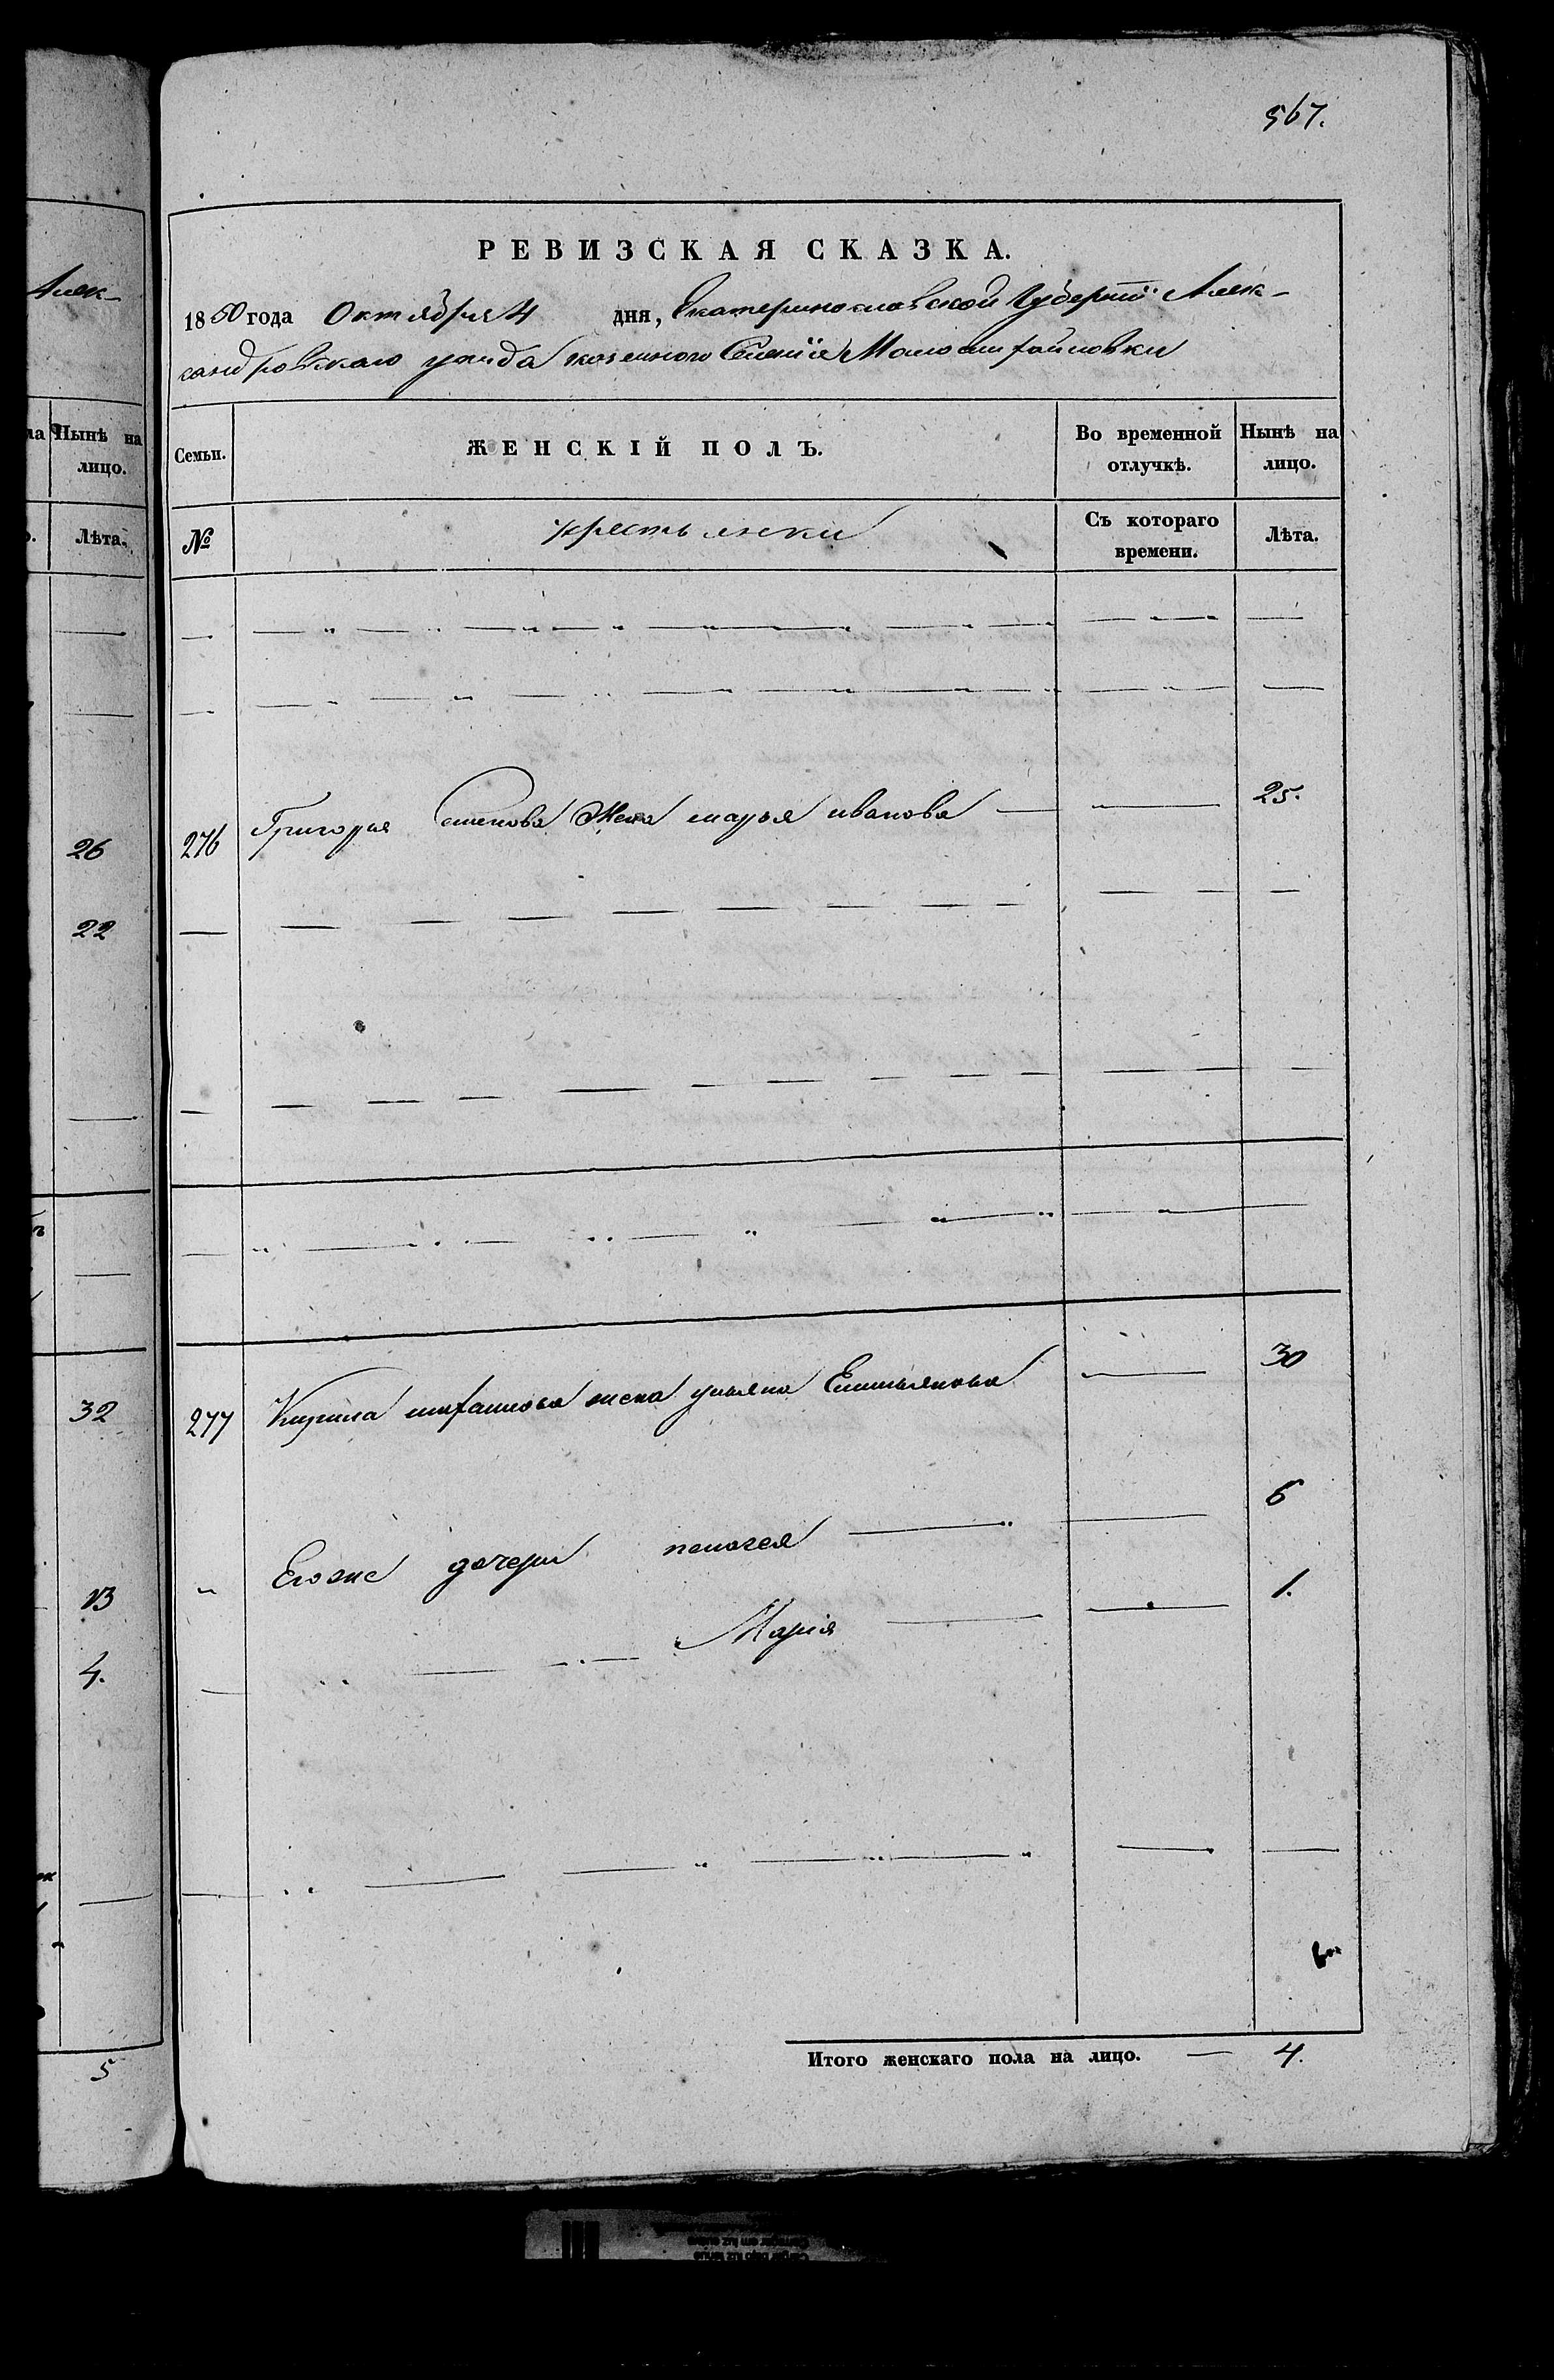 Алек-
ла Нынѣ на
лицо.
Лѣта.
26
22
32
13
4.
5
567.
РЕВИЗСКАЯ СКАЗКА.
1850 года Октября 4 дня, Екатеринославской Губерніи Алек-
сандровскаго уезда казенного Селенія Маломихайловки
Семьи. ЖЕНСКІЙ ПОЛЪ. Во временной отлучкѣ. Нынѣ на лицо.
№ крестьянки Съ котораго времени. Лѣта.
276 Григорья Семенова Жена марья иванова 25.
277 Кирила михайлова жена ульяна Емельянова 30
" Егоже дочери пелагея 6
Марія 1.
Итого женскаго пола на лицо. — 4.